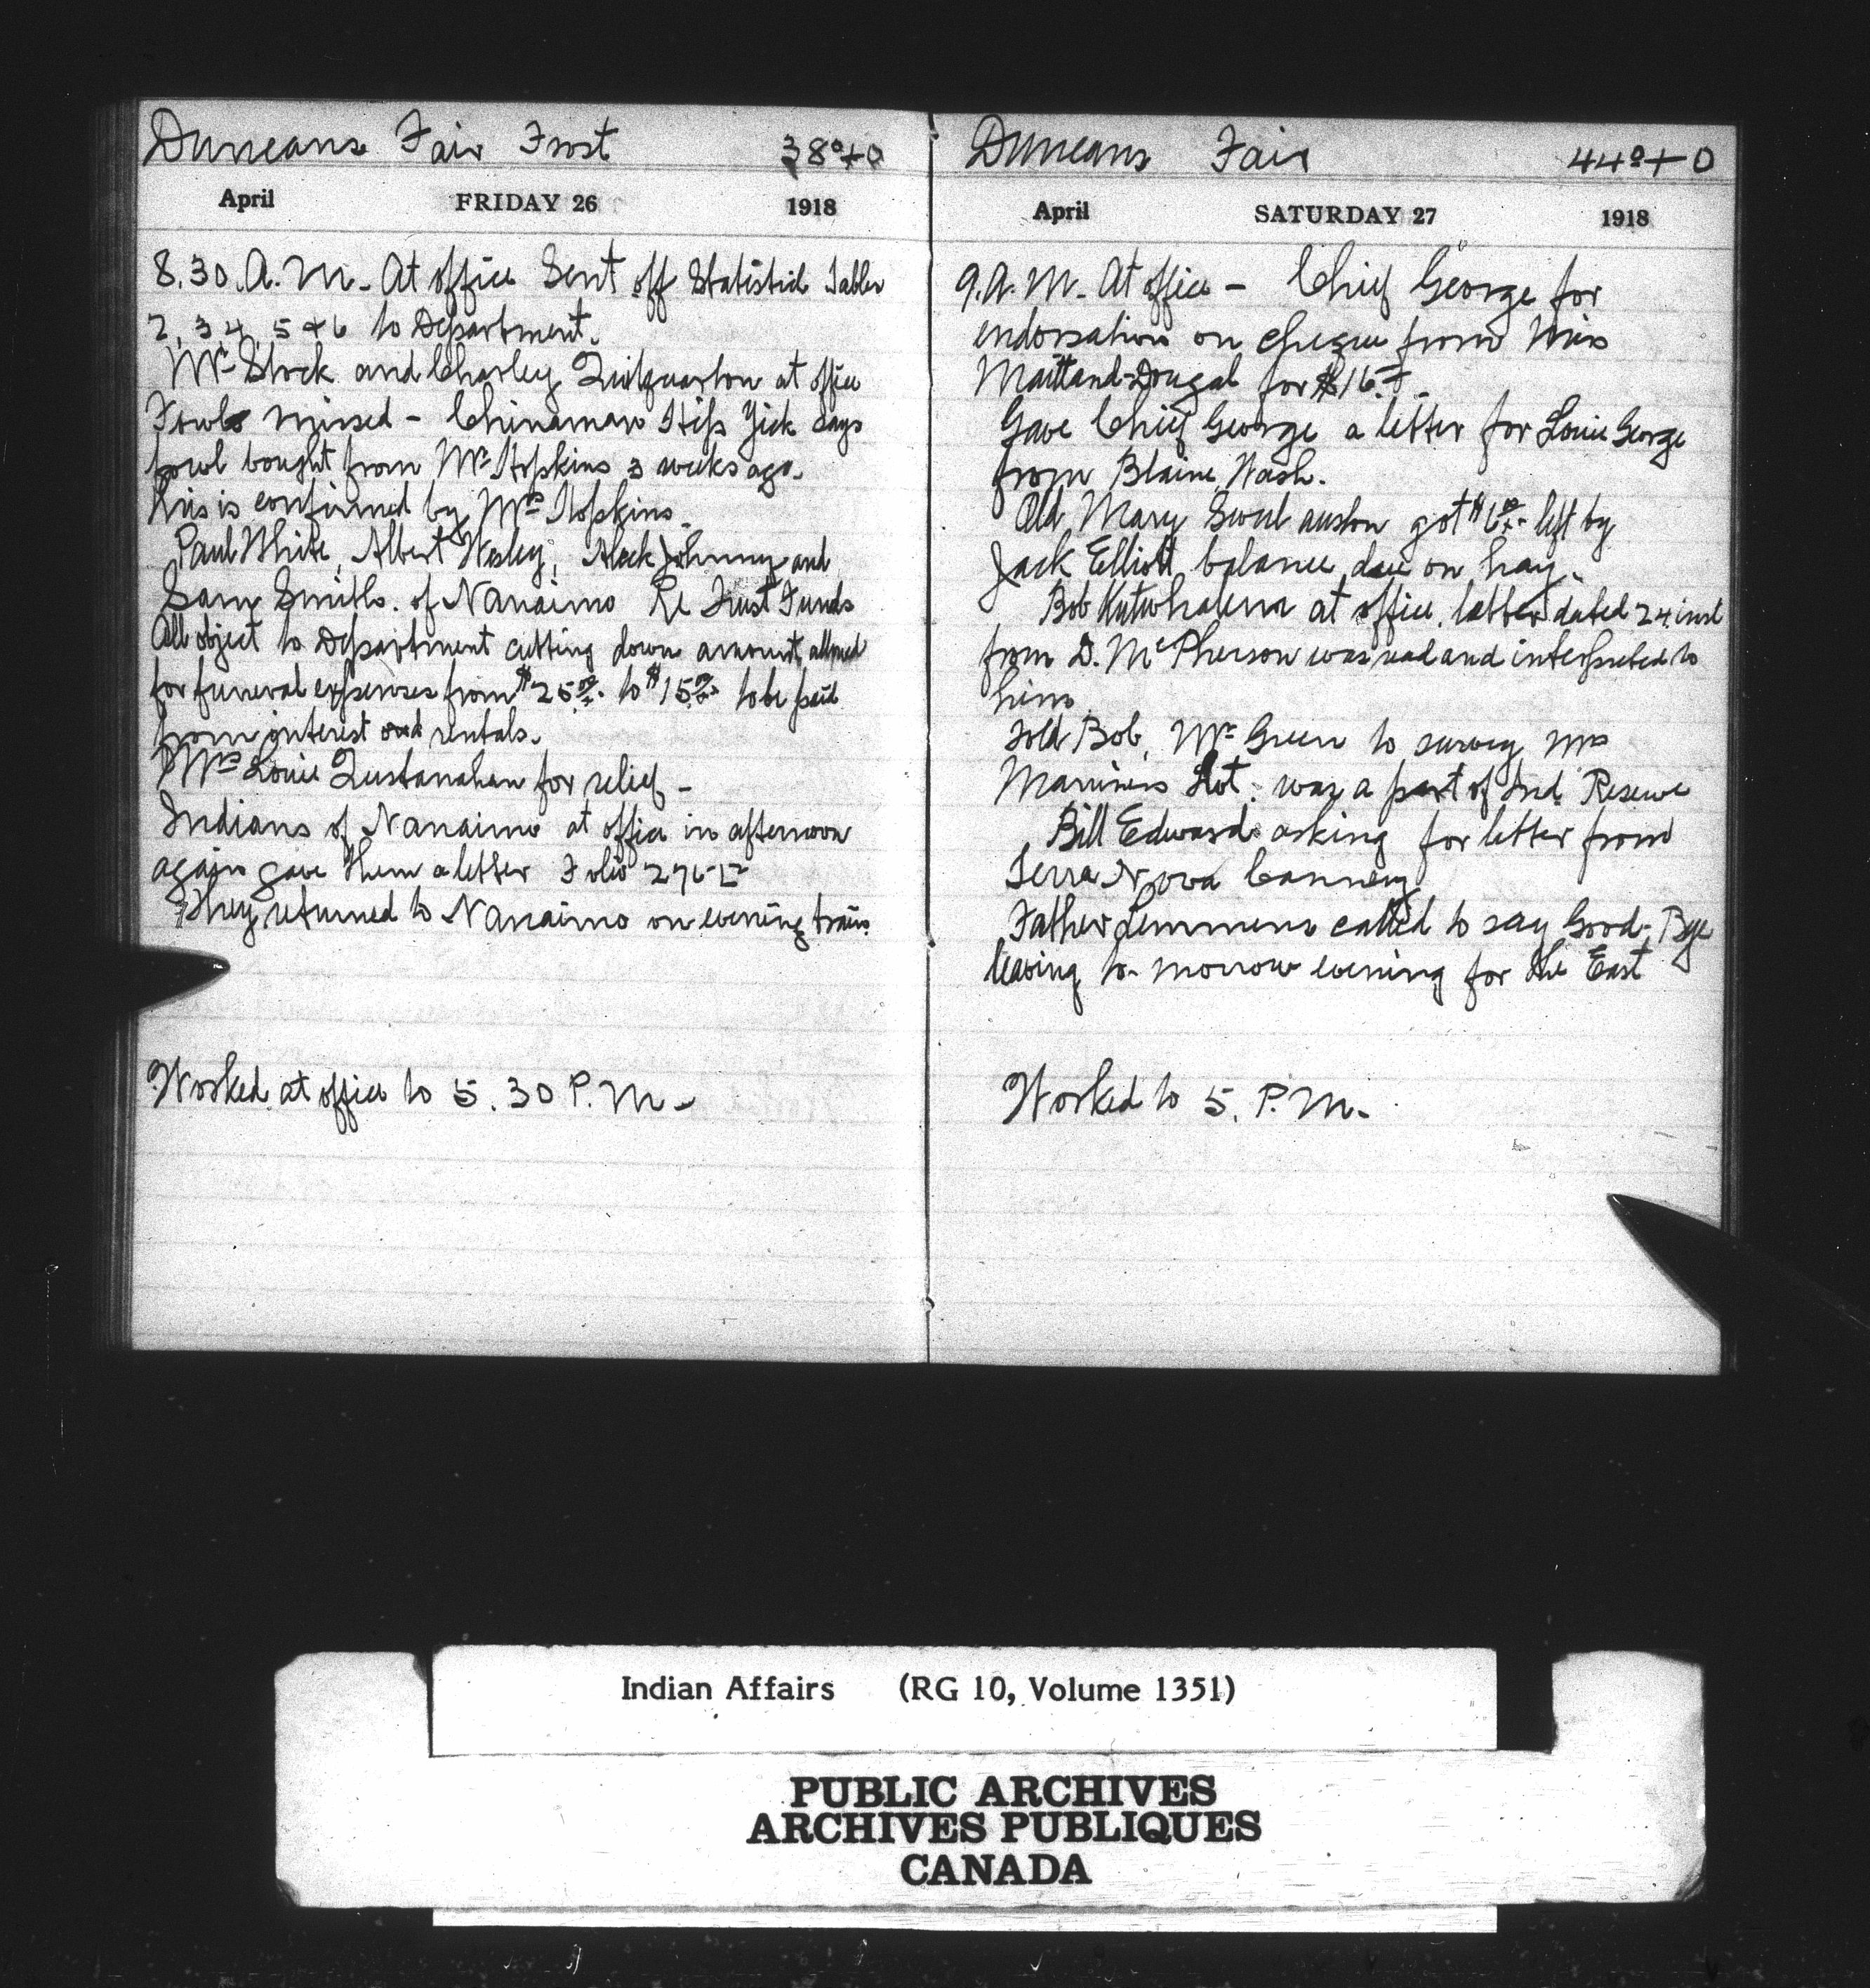 Duncans Fair Frost 38°+0
April FRIDAY 26 1918
8.30.A.M. At office Sent off Statistical Tables
2, 3 4, 5 & 6 to Department.
Mr Stock and Charley at office
Fowls missed - Chinaman Yick says
fowl bought from Mr Hopkins 3 weeks ago.
this is confirmed by Mrs Hopkins.
Paul White, Albert Wesley, Aleck Johnny and
Sam Smith. of Nanaimo Re Trust Funds
All object to Department cutting down amount allowed
for funeral expenses from $25.00 to $15.00 to be paid
from interest and rentals.
Mrs Louie for relief -
Indians of Nanaimo at office in afternoon
again gave them a letter Folio 276
They returned to Nanaimo on evening train.
Worked at office to 5.30 P.M.-
Duncans Fair 44°+0
April SATURDAY 27 1918
9.A.M. At office - Chief George for
endorsation on cheque from Miss
Maitland-Dougal for $16
Gave Chief George a letter for Louie George
from Blaine, Wash.
Old Mary got left by
Jack Elliott balance due on hay.
Bob at office. letter dated 24 inst
from D. McPherson was read and interpreted to
him
Told Bob, Mr Green to survey Mrs
Mariners Lot. was a part of Ind. Reserve
Bill Edwards asking for letter from
Terra Nova Cannery
Father Lemmens called to say Good-Bye
leaving to-morrow evening for the East
Worked to 5. P.M.-
Indian Affairs (RG 10, Volume 1351)
PUBLIC ARCHIVES
ARCHIVES PUBLIQUES
CANADA